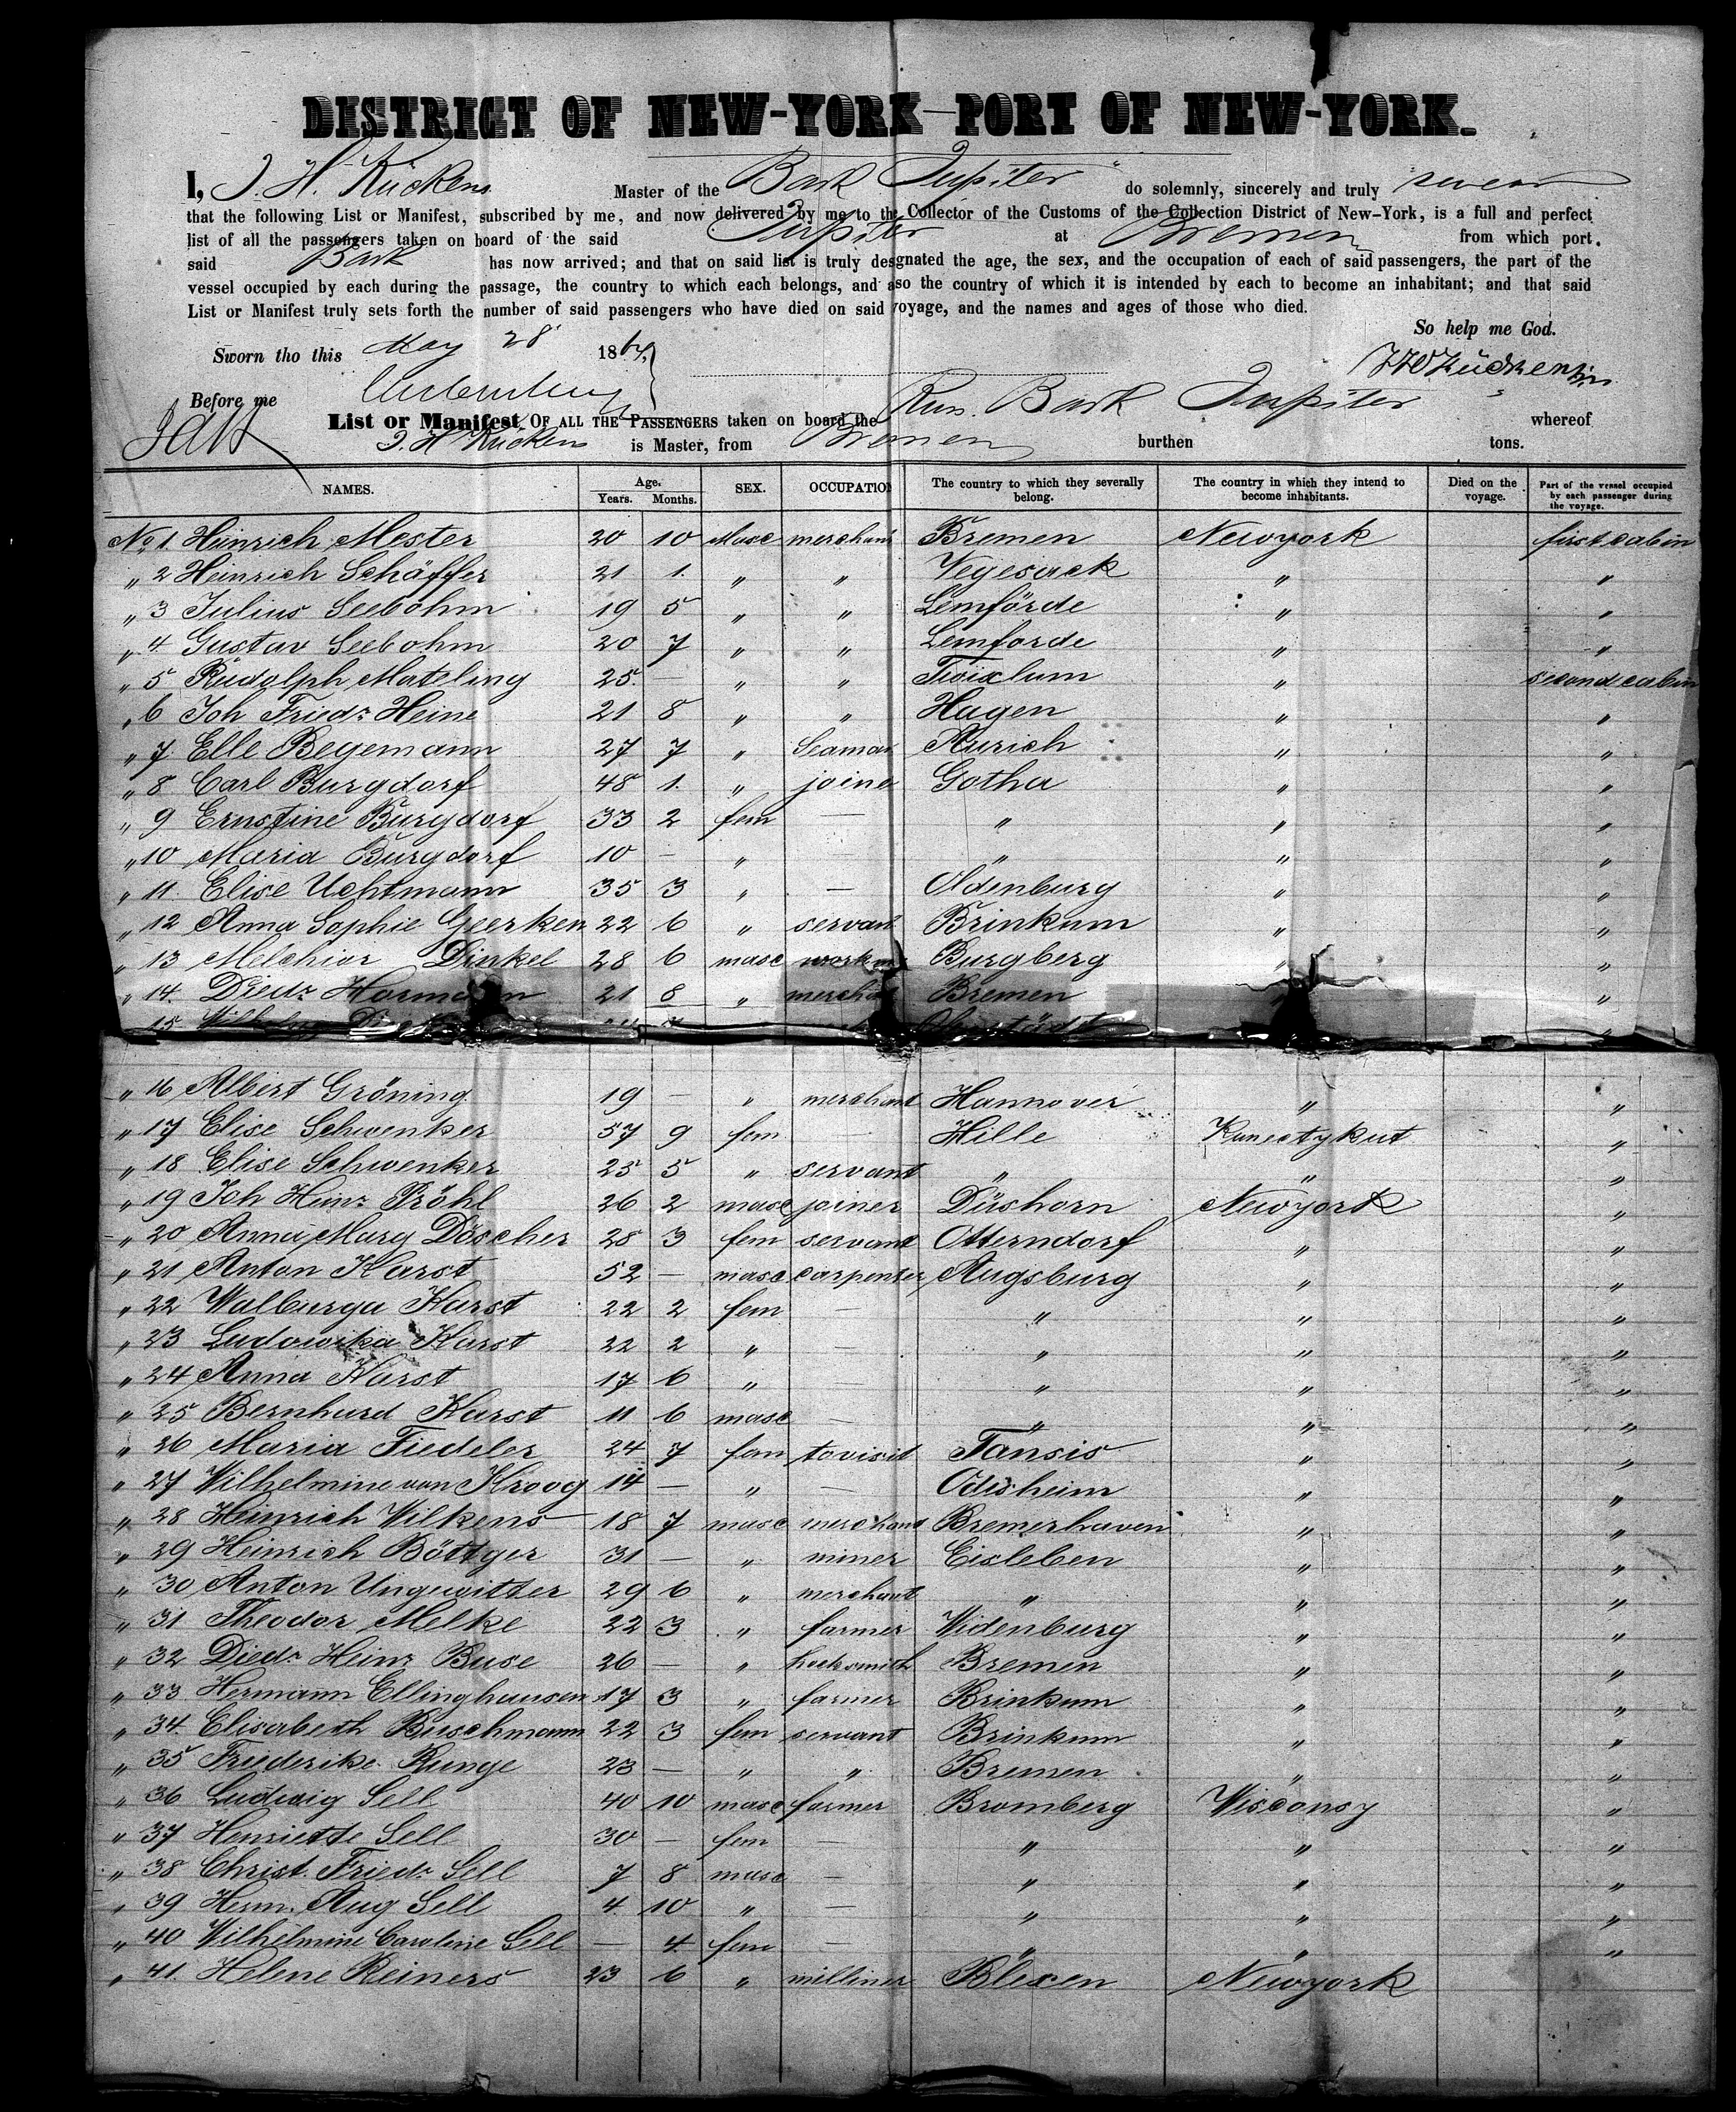 DISTRICT OF NEW-YORK—PORT OF NEW-YORK.
I, J. H. Kücken Master of the Bark Jupiter do solemnly, sincerely and truly swear
that the following List or Manifest, subscribed by me, and now delivered by me to the Collector of the Customs of the Collection District of New-York, is a full and perfect
list of all the passengers taken on board of the said Jupiter at Bremen from which port.
said Bark has now arrived; and that on said list is truly designated the age, the sex, and the occupation of each of said passengers, the part of the
vessel occupied by each during the passage, the country to which each belongs, and also the country of which it is intended by each to become an inhabitant; and that said
List or Manifest truly sets forth the number of said passengers who have died on said voyage, and the names and ages of those who died.
So help me God.
Sworn tho this May 28 1864,
Before me
List or Manifest OF ALL THE PASSENGERS taken on board the Bark Jupiter whereof
J. H. Kücken is Master, from Bremen burthen tons.
NAMES. Age. Years. Months. SEX. OCCUPATION The country to which they severally belong. The country in which they intend to become inhabitants. Died on the voyage. Part of the vessel occupied by each passenger during the voyage.
No 1. Heinrich Mester 20 10 Masc merchant Bremen Newyork first cabin
" 2 Heinrich Schäffer 21 1. " " Vegesack " "
" 3 Julius Seebohm 19 5 " " Lemförde " "
" 4 Gustav Seebohm 20 7 " " Lemforde " "
" 5 Rudolph Mateling 25. — " " Twixlum " second cabin
" 6 Joh Friedr Heine 21 8 " " Hagen " "
" 7 Elle Begemann 27 7 " Seaman Aurich " "
" 8 Carl Burgdorf 48 1. " joiner Gotha " "
" 9 Ernstine Burgdorf 33 2 fem — " " "
" 10 Maria Burgdorf 10 — " — " " "
" 11. Elise Uchtmann 35 3 " — Oldenburg " "
" 12 Anna Sophie Geerken 22 6 " servant Brinkum " "
" 13 Melchior Dinkel 28 6 masc workm Burgberg " "
" 14. Diedr Harmann 21 8 " merchant Bremen " "
" 15 Wilhelm
" 16 Albert Gröning 19 — " merchant Hannover " "
" 17 Elise Schwenker 57 9 fem — Hille Kunectykut "
" 18 Elise Schwenker 25 5 " servant " " "
" 19 Joh Heinr Pröhl 26 2 masc joiner Düshorn Newyork "
" 20 Anna Marg Döscher 28 3 fem servant Otterndorf " "
" 21 Anton Karst 52 — masc carpenter Augsburg " "
" 22 Walburga Karst 22 2 fem — " " "
" 23 Ludowika Karst 22 2 " — " " "
" 24 Anna Karst 17 6 " — " " "
" 25 Bernhard Karst 11 6 masc — " " "
" 26 Maria Fiedeler 24 7 fem to visit Tänsis " "
" 27 Wilhelmine van Kroog 14 — " — Odisheim " "
" 28 Heinrich Wilkens 18 7 masc merchant Bremerhaven " "
" 29 Heinrich Böttger 31 — " miner Eisleben " "
" 30 Anton Ungewitter 29 6 " merchant " " "
" 31 Theodor Melke 22 3 " farmer Widenburg " "
" 32 Diedr Heinr Buse 26 — " locksmith Bremen " "
" 33 Hermann Ellinghausen 17 3 " farmer Brinkum " "
" 34. Elisabeth Buschmann 22 3 fem servant Brinkum " "
" 35 Friederike Runge 23 — " " Bremen " "
" 36 Ludwig Sell 40 10 masc farmer Bromberg Wisconsy "
" 37 Henriette Sell 30 — fem — " " "
" 38 Christ. Friedr Sell 7 8 masc — " " "
" 39 Herm. Aug Sell 4 10 " — " " "
" 40 Wilhelmine Caroline Sell — 4 fem — " " "
" 41. Helene Reiners 23 6 " milliner Blexen Newyork